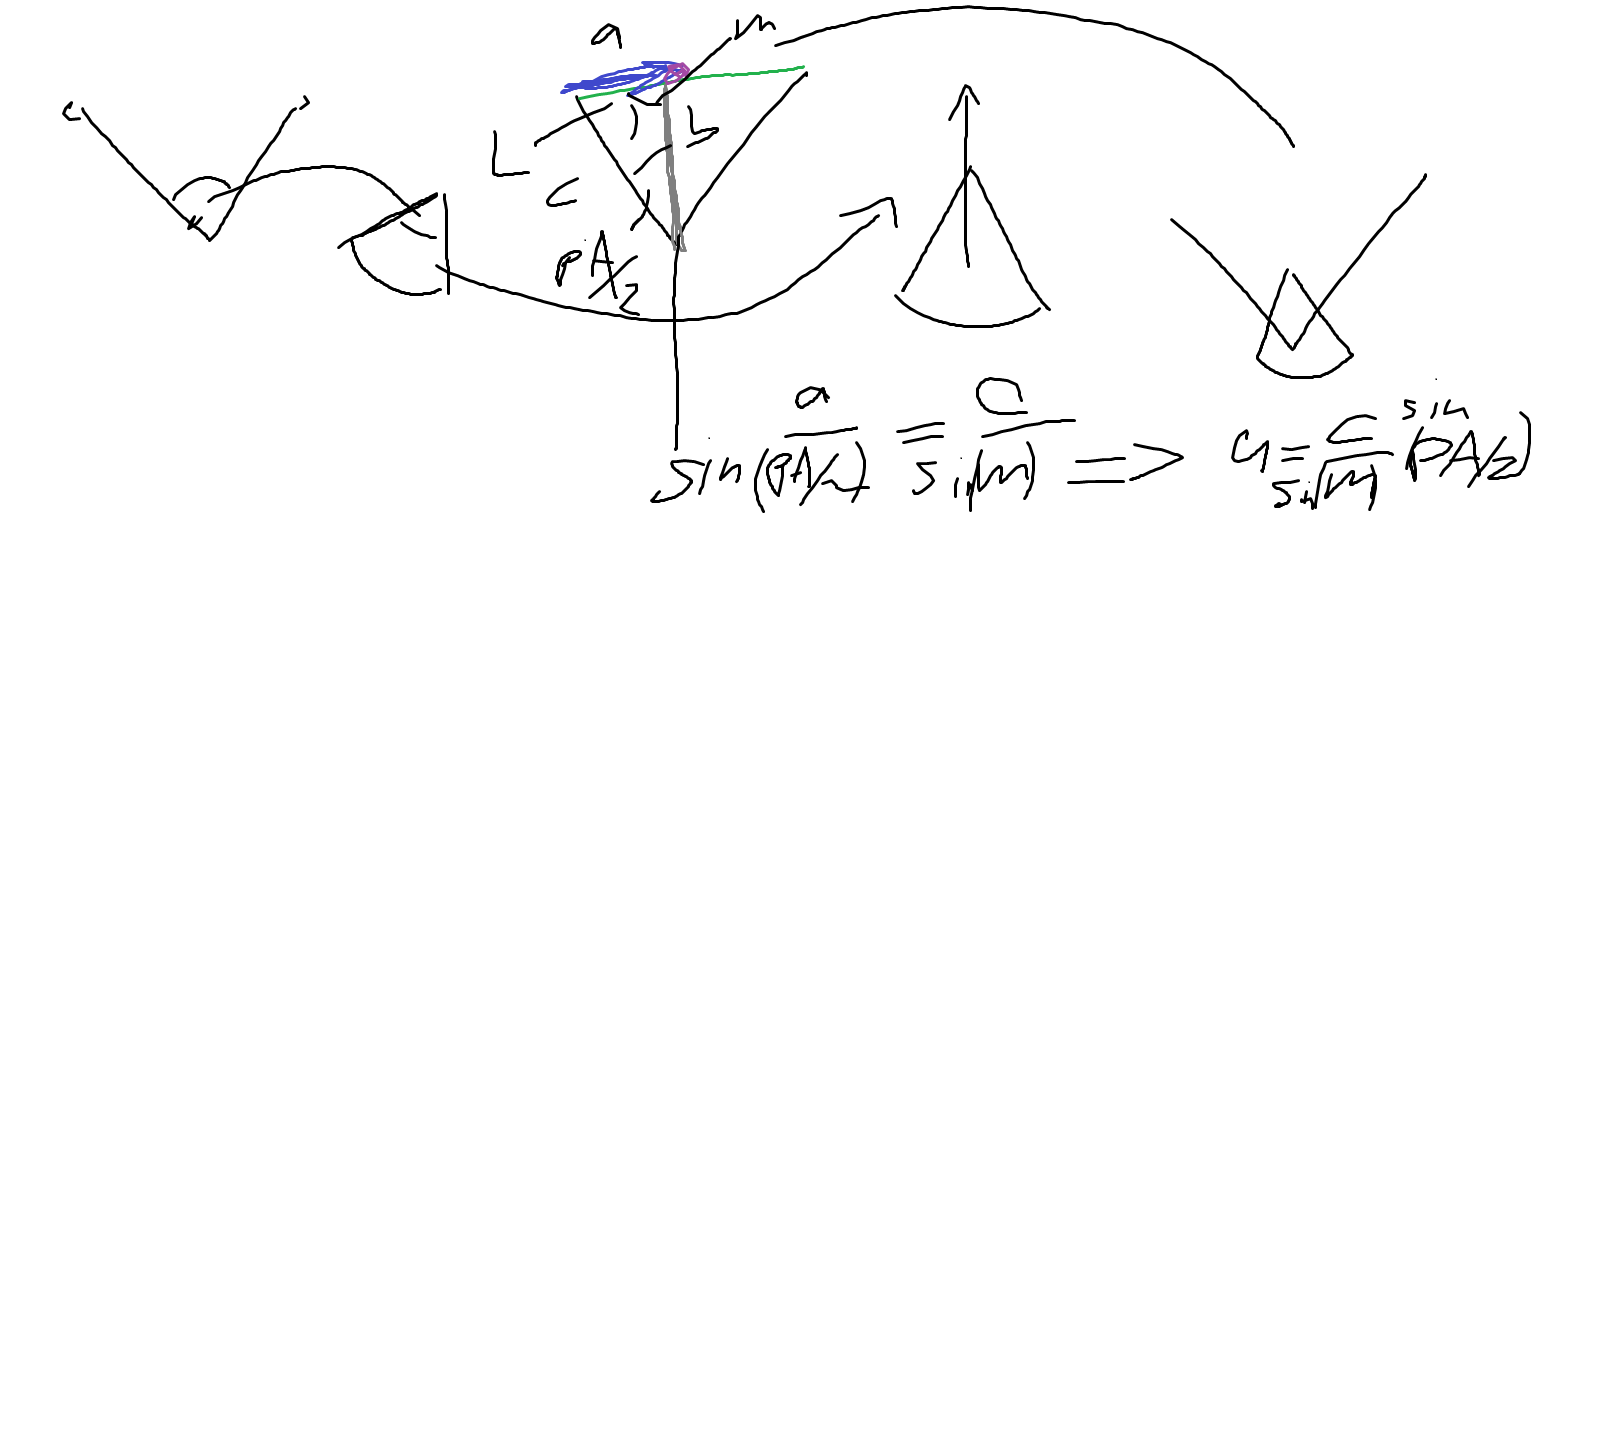 a
m
L
b
c
PA/2
a/sin(PA/2) = c/sin(m) => a = c/sin(m) sin(PA/2)